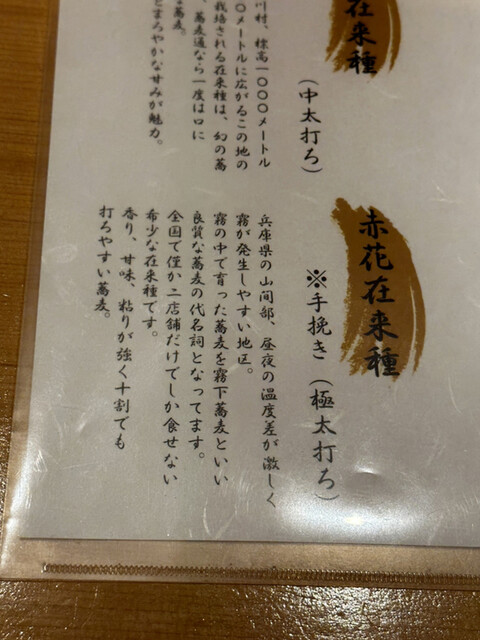 在来種
(中太打ち)
川村、標高一〇〇〇メートル
〇メートルに広がるこの地の
栽培される在来種は、幻の蕎
、蕎麦通なら一度は口に
な蕎麦。
とまろやかな甘みが魅力。
赤花在来種
※手挽き(極太打ち)
兵庫県の山間部、昼夜の温度差が激しく
霧が発生しやすい地区。
霧の中で育った蕎麦を霧下蕎麦といい
良質な蕎麦の代名詞となってます。
全国で僅か二店舗だけでしか食せない
希少な在来種です。
香り、甘味、粘りが強く十割でも
打ちやすい蕎麦。